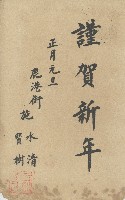 謹賀新年
正月元旦
鹿港街
施
水清
賢樹